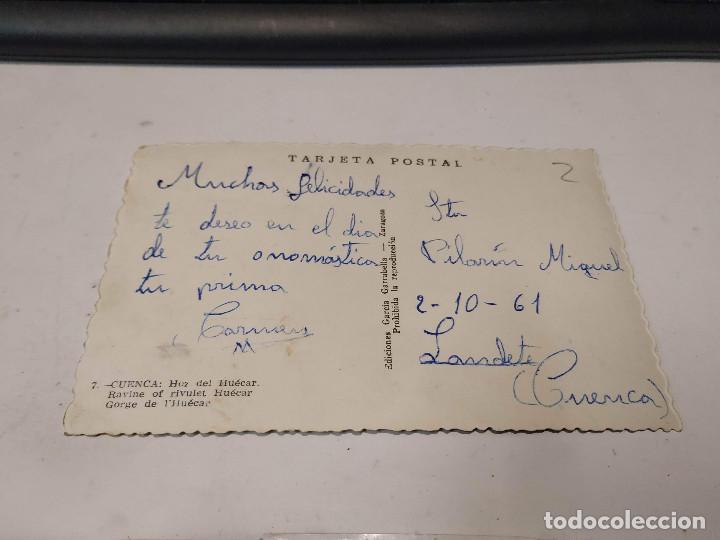 TARJETA POSTAL
2
Muchas felicidades
te deseo en el dia
de tu onomástica
tu prima
Carmen
M
Ediciones García Garrabella — Zaragoza
Prohibida la reproducción
Sta
Pilarín Miquel
2-10-61
Landete
(Cuenca)
7.—CUENCA: Hoz del Huécar.
Ravine of rivulet Huécar
Gorge de l'Huécar
todocoleccion